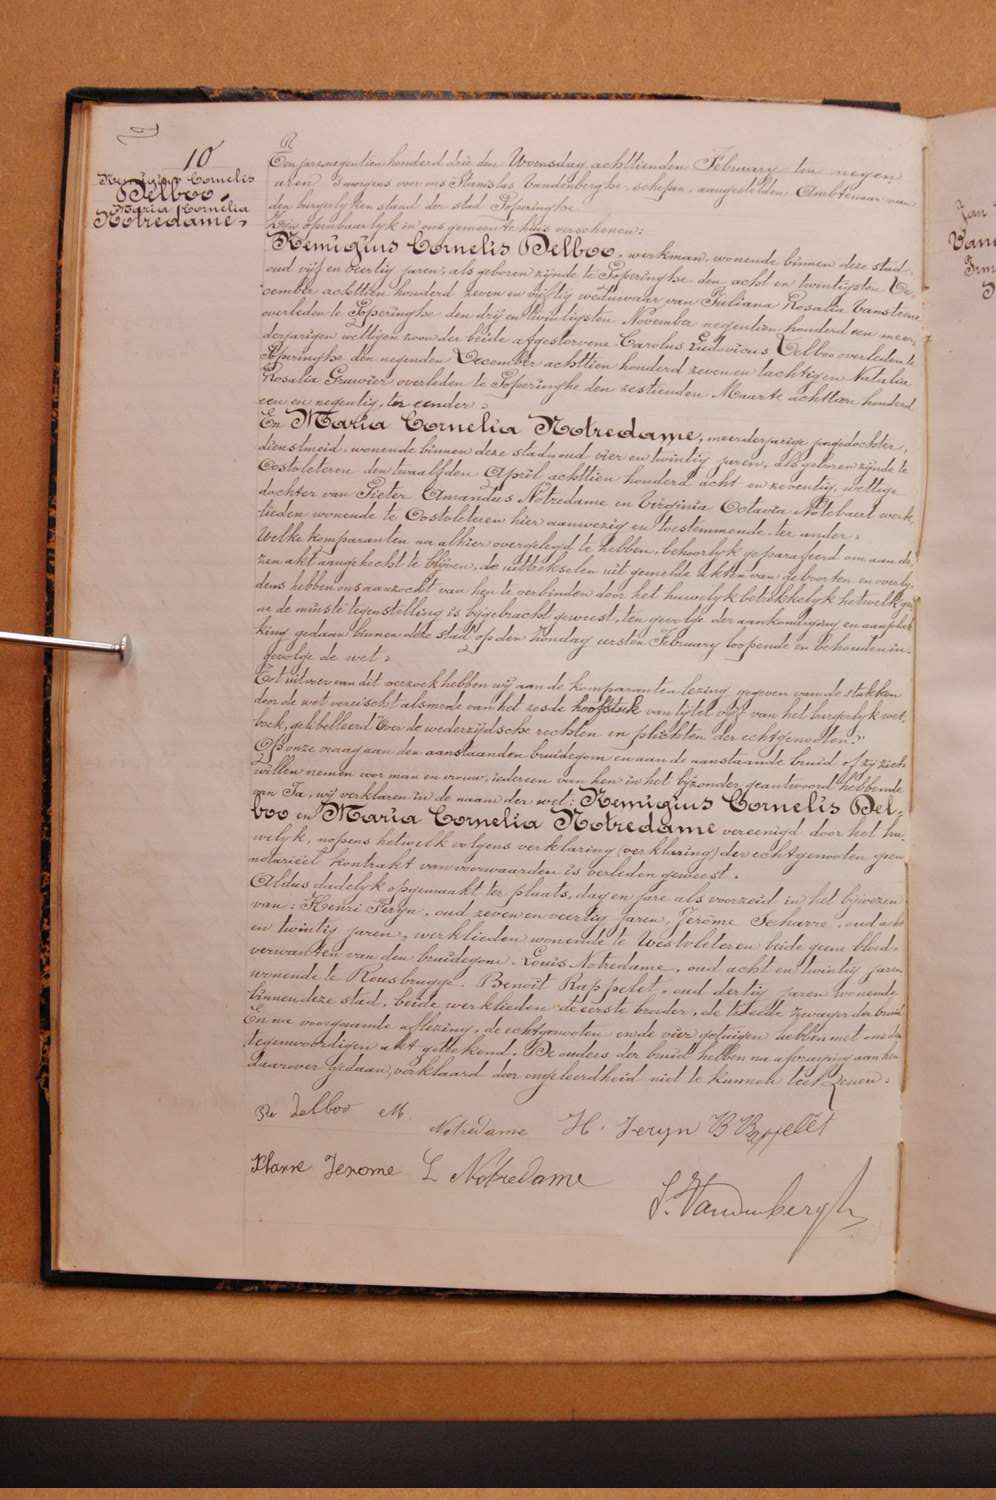 10
Remigius Cornelis
Delboo.
Maria Cornelia
Notredame.
Ten jare negentien honderd drie den Woensdag achttienden February ten negen
uren 's morgens voor ons Stanislas Vandenberghe, schepen, aangestelden Ambtenaar van
den burgerlyken stand der stad Poperinghe
Zyn openbaarlyk in ons gemeentehuis verschenen:
Remigius Cornelis Delboo, werkman, wonende binnen deze stad,
oud vyf en veertig jaren, als geboren zynde te Poperinghe den acht en twintigsten De-
cember achttien honderd zeven en vyftig weduwaar van Juliana Rosalia Vansteene
overleden te Poperinghe den drij en twintigsten November negentien honderd een meer-
derjarigen wettigen zoon der beide afgestorvene Carolus Ludovicus Delboo overleden te
Poperinghe den negenden December achttien honderd zeven en tachtig en Natalia
Rosalia Gruwier overleden te Poperinghe den zestienden Maarte achttien honderd
een en negentig, ter eender;
En Maria Cornelia Notredame, meerderjarige jongedochter,
dienstmeid, wonende binnen deze stad, oud vier en twintig jaren, als geboren zynde te
Oostvleteren den twaalfden April achttien honderd acht en zeventig, wettige
dochter van Pieter Amandus Notredame en Virginia Octavia Notebaert werk-
lieden wonende te Oostvleteren hier aanwezig en toestemmende, ter ander;
Welke komparanten na alhier overgelegd te hebben, behoorlyk geparafeerd om aan de-
zen akt aangehecht te blyven, de uittrekselen uit gemelde akten van geboorten en overly-
dens hebben ons aanzocht van hen te verbinden door het huwelyk betrekkelyk hetwelk gee-
ne de minste tegenstelling is bygebracht geweest, ten gevolge der aankondiging en aanplak-
king gedaan binnen deze stad op den Zondag eersten February loopende en behouden in-
gevolge de wet;
Tot uitvoer van dit verzoek hebben wy aan de komparanten lezing gegeven van de stukken
door de wet vereischt alsmede van het zesde hoofdstuk van tytel vyf van het burgerlyk wet-
boek, gelibelleerd "Over de wederzydsche rechten en plichten der echtgenooten."
Op onze vraag aan den aanstaanden bruidegom en aan de aanstaande bruid of zy zich
willen nemen voor man en vrouw, iedereen van hen in het byzonder geantwoord hebbende
van Ja, wy verklaren in de naam der wet: Remigius Cornelis Del-
boo en Maria Cornelia Notredame vereenigd door het hu-
welyk, nopens hetwelk volgens verklaring (verklaring) der echtgenooten geen
notarieel kontrakt van voorwaarden is verleden geweest.
Aldus dadelyk opgemaakt ter plaats, dag en jare als voorzeid in het bywezen
van: Henri Feryn, oud zeven en veertig jaren, Jerôme Scharre, oud acht
en twintig jaren, werklieden wonende te Westvleteren beide geene bloed-
verwanten van den bruidegom, Louis Notredame, oud acht en twintig jaren
wonende te Rousbrugge. Benoit Rappelet, oud dertig jaren wonende
binnen deze stad, beide werklieden de eerste broeder, de tweede zwager der bruid
En na voorgaande aflezing, de echtgenooten en de vier getuigen hebben met ons den
tegenwoordigen akt geteekend. De ouders der bruid hebben na afvraging aan hen
daarover gedaan, verklaard door ongeleerdheid niet te kunnen teekenen.
Re Delboo M. Notredame H. Feryn B Rappelet
Jerome L Notredame
S. Vandenberghe
Jan